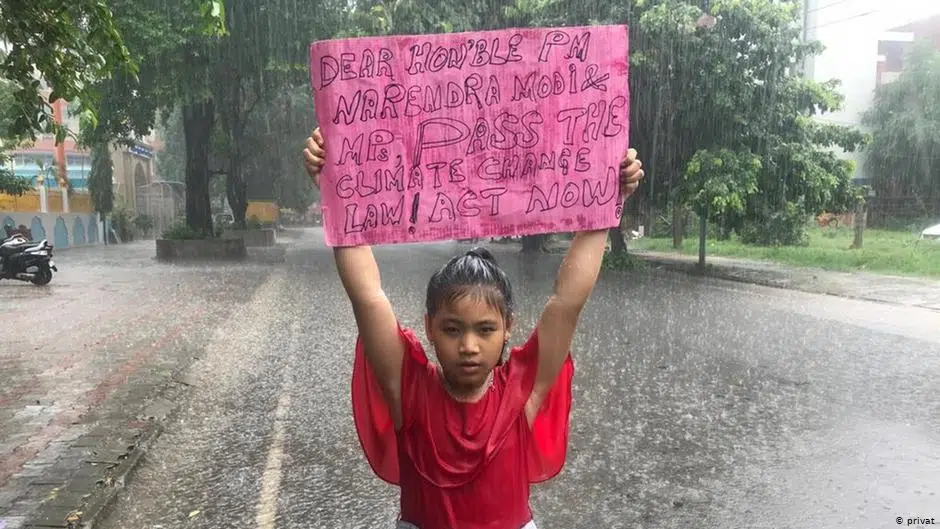 DEAR HON'BLE PM
NARENDRA MODI &
MPs, PASS THE
CLIMATE CHANGE
LAW! ACT NOW!
© privat